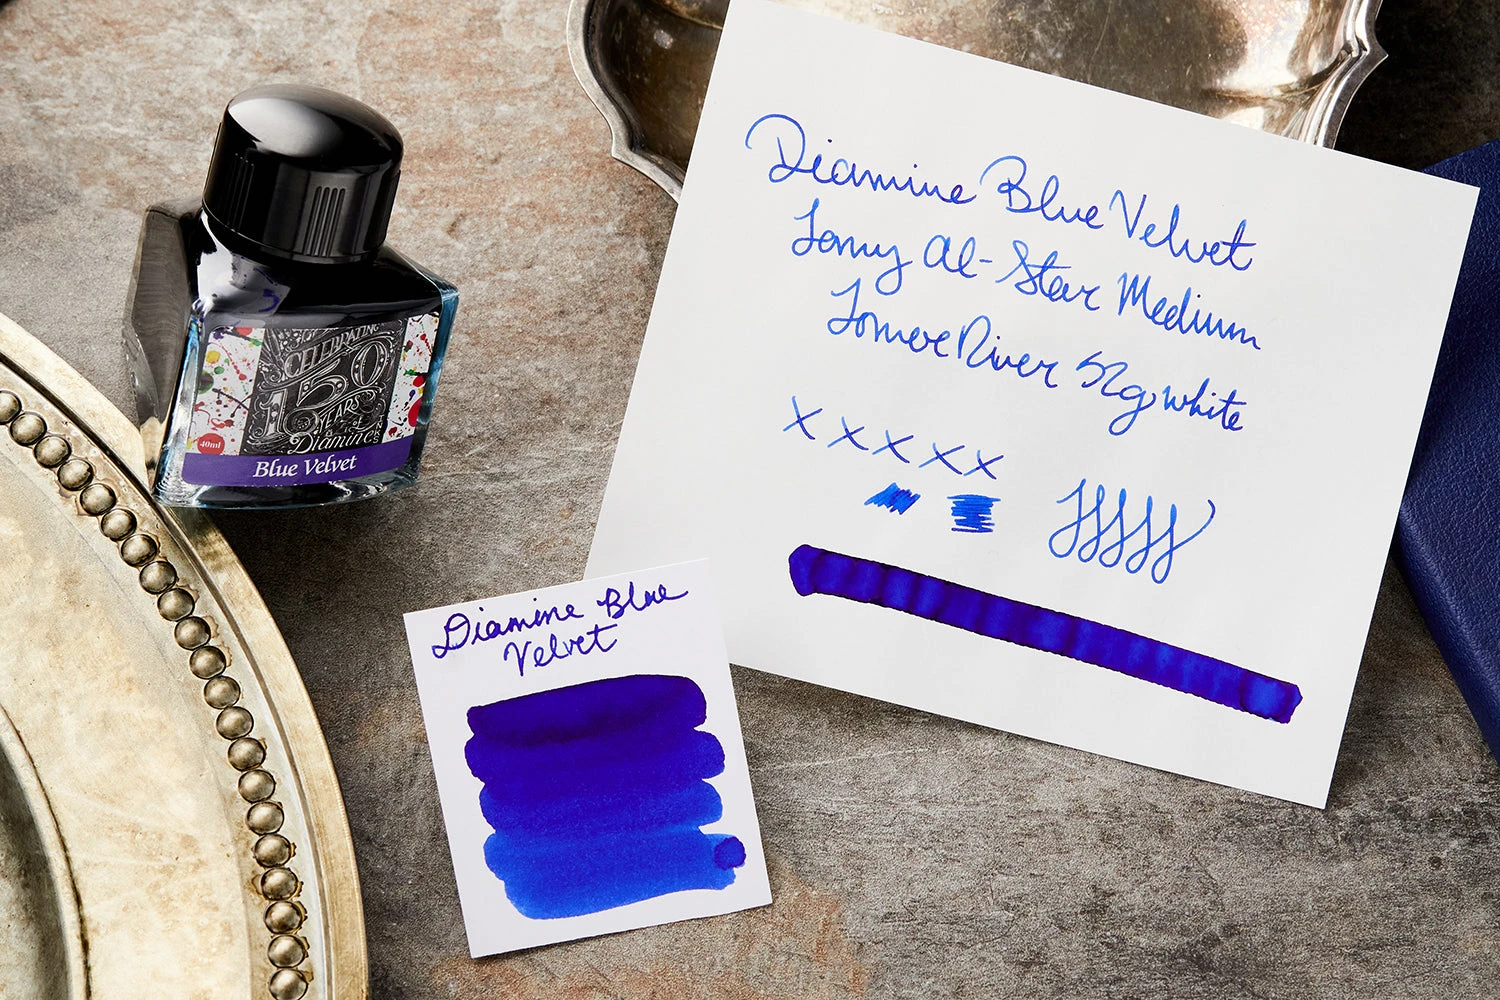 CELEBRATING
150
YEARS
of
Diamine
INKS
40ml
Blue Velvet
Diamine Blue Velvet
Lamy Al-Star Medium
Tomoe River 52g white
X X X X X
Diamine Blue
Velvet